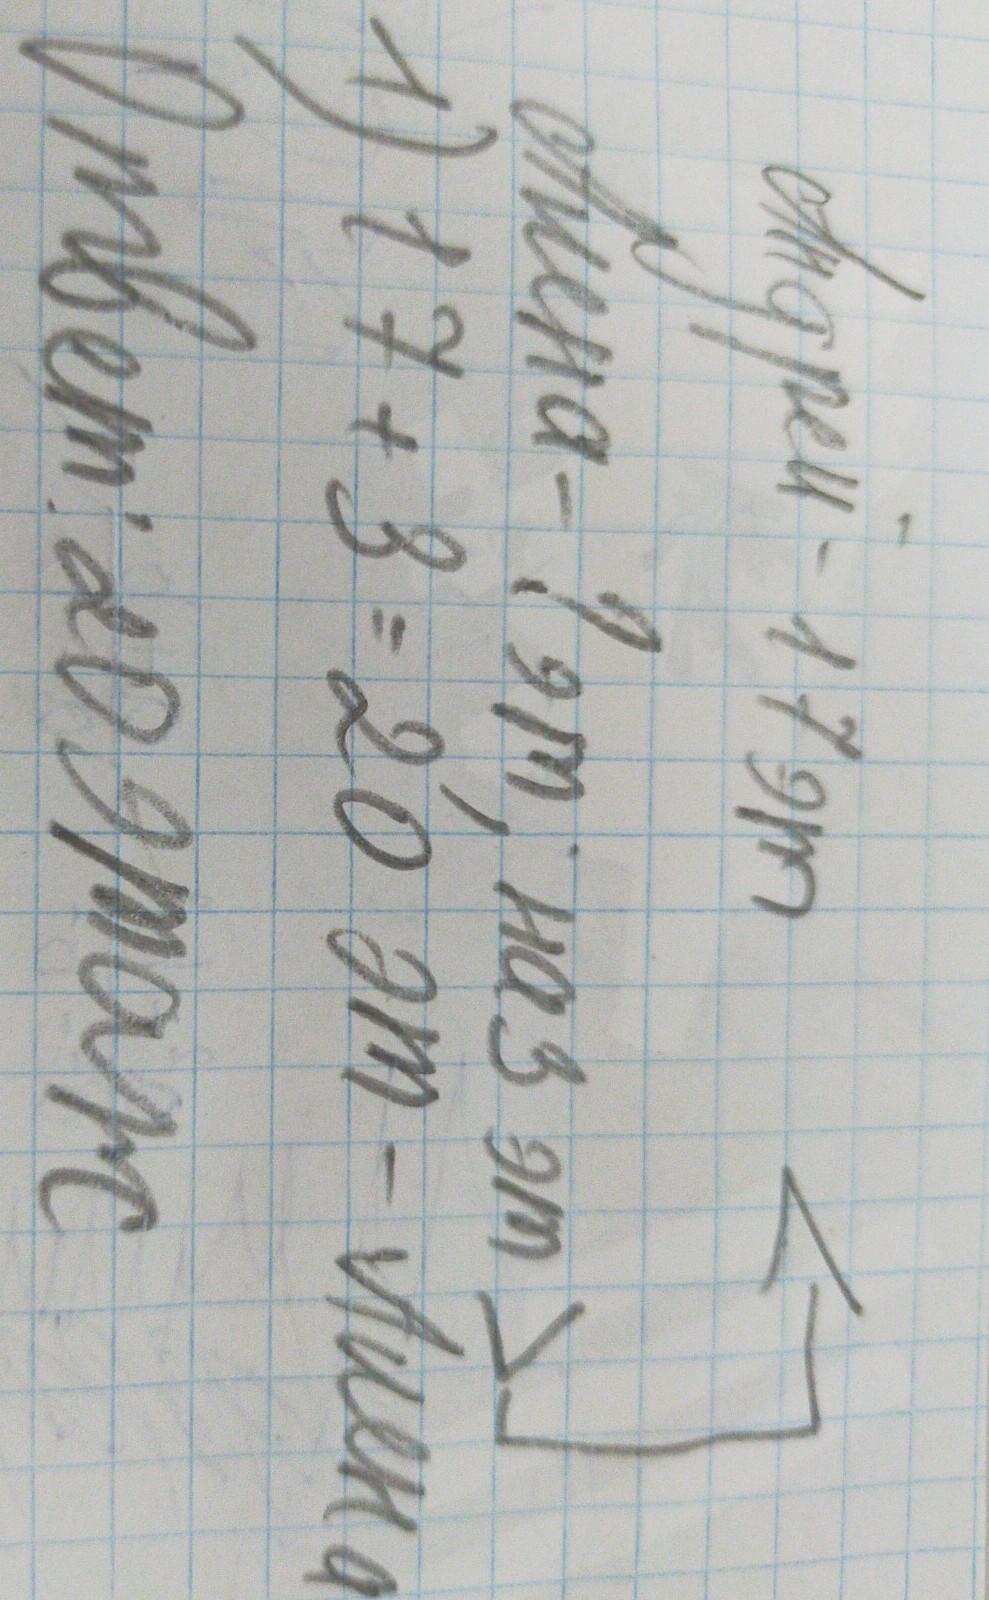 Андрей - 17 эт
Алена - ? эт, на 3 эт
1) 17 + 3 = 20 эт - Алена
Ответ: 20 этаж